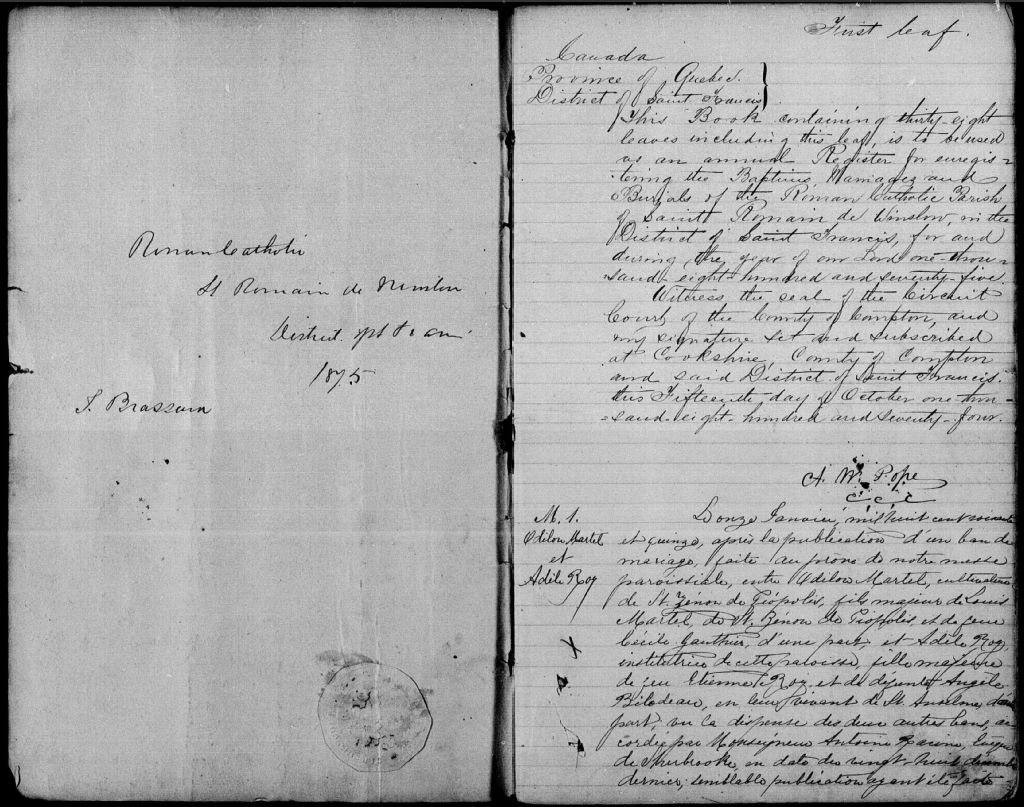 Roman Catholic
St Romain de Winslow
District of St Fran
1875
S. Brassam
First leaf.
Canada
Province of Quebec.
District of Saint Francis
This Book containing thirty-eight
leaves including this leaf, is to be used
as an annual Register for enregis-
tering the Baptisms, Marriages and
Burials of the Roman Catholic Parish
of Saint Romain de Winslow, in the
District of Saint Francis, for and
during the year of our Lord one-thou-
sand-eight-hundred and seventy-five.
Witness the seal of the Circuit
Court of the County of Compton, and
my signature set and subscribed
at Cookshire, County of Compton
and said District of Saint Francis.
this Fifteenth day of October one-thou-
sand-eight-hundred and seventy-four.
A. W. Pope
C. C. C.
M. 1.
Odilon Martel
et
Adèle Roy
Donze Janvier, mil huit cent soixante
et quinze, après la publication d'un ban de
mariage, faite au prône de notre messe
paroissiale, entre Odilon Martel, cultivateur
de St. Zénon de Piopolis, fils majeur de Louis
Martel, de St. Zénon de Piopolis, et de feue
Cécile Gauthier, d'une part; et Adèle Roy,
institutrice de cette paroisse, fille majeure
de feu Etienne Roy, et de défunte Angèle
Bilodeau, en leur vivant de St. Anselme, d'autre
part; vu la dispense des deux autres bans, ac-
cordée par Monseigneur Antoine Racine, Evêque
de Sherbrooke, en date du vingt-huit décembre
dernier; semblable publication ayant été faite